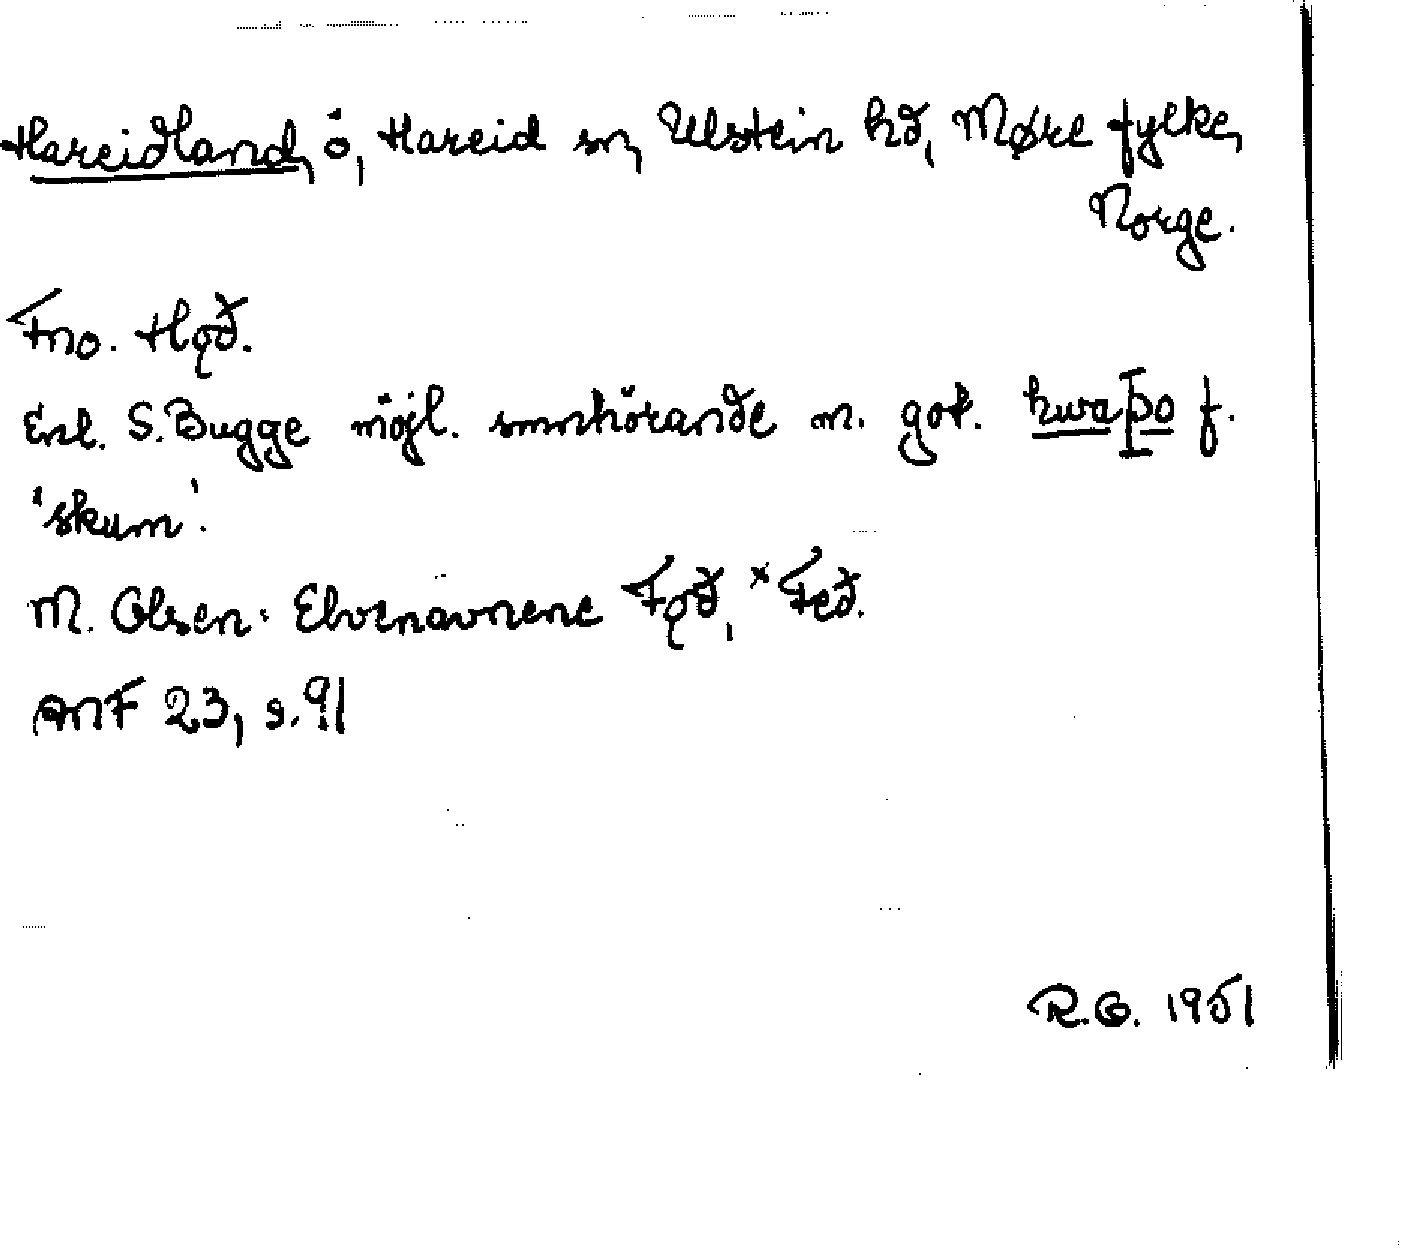 Hareidland, ö, Hareid sn, Ulstein hd, Møre fylke,
Norge.
Fno. Hǫð.
Enl. S. Bugge möjl. smnhörande m. got. hwaþo f.
'skum'.
M. Olsen: Elvenavnene Fǫð, ˣFeð.
ANF 23, s. 91
R.G. 1951